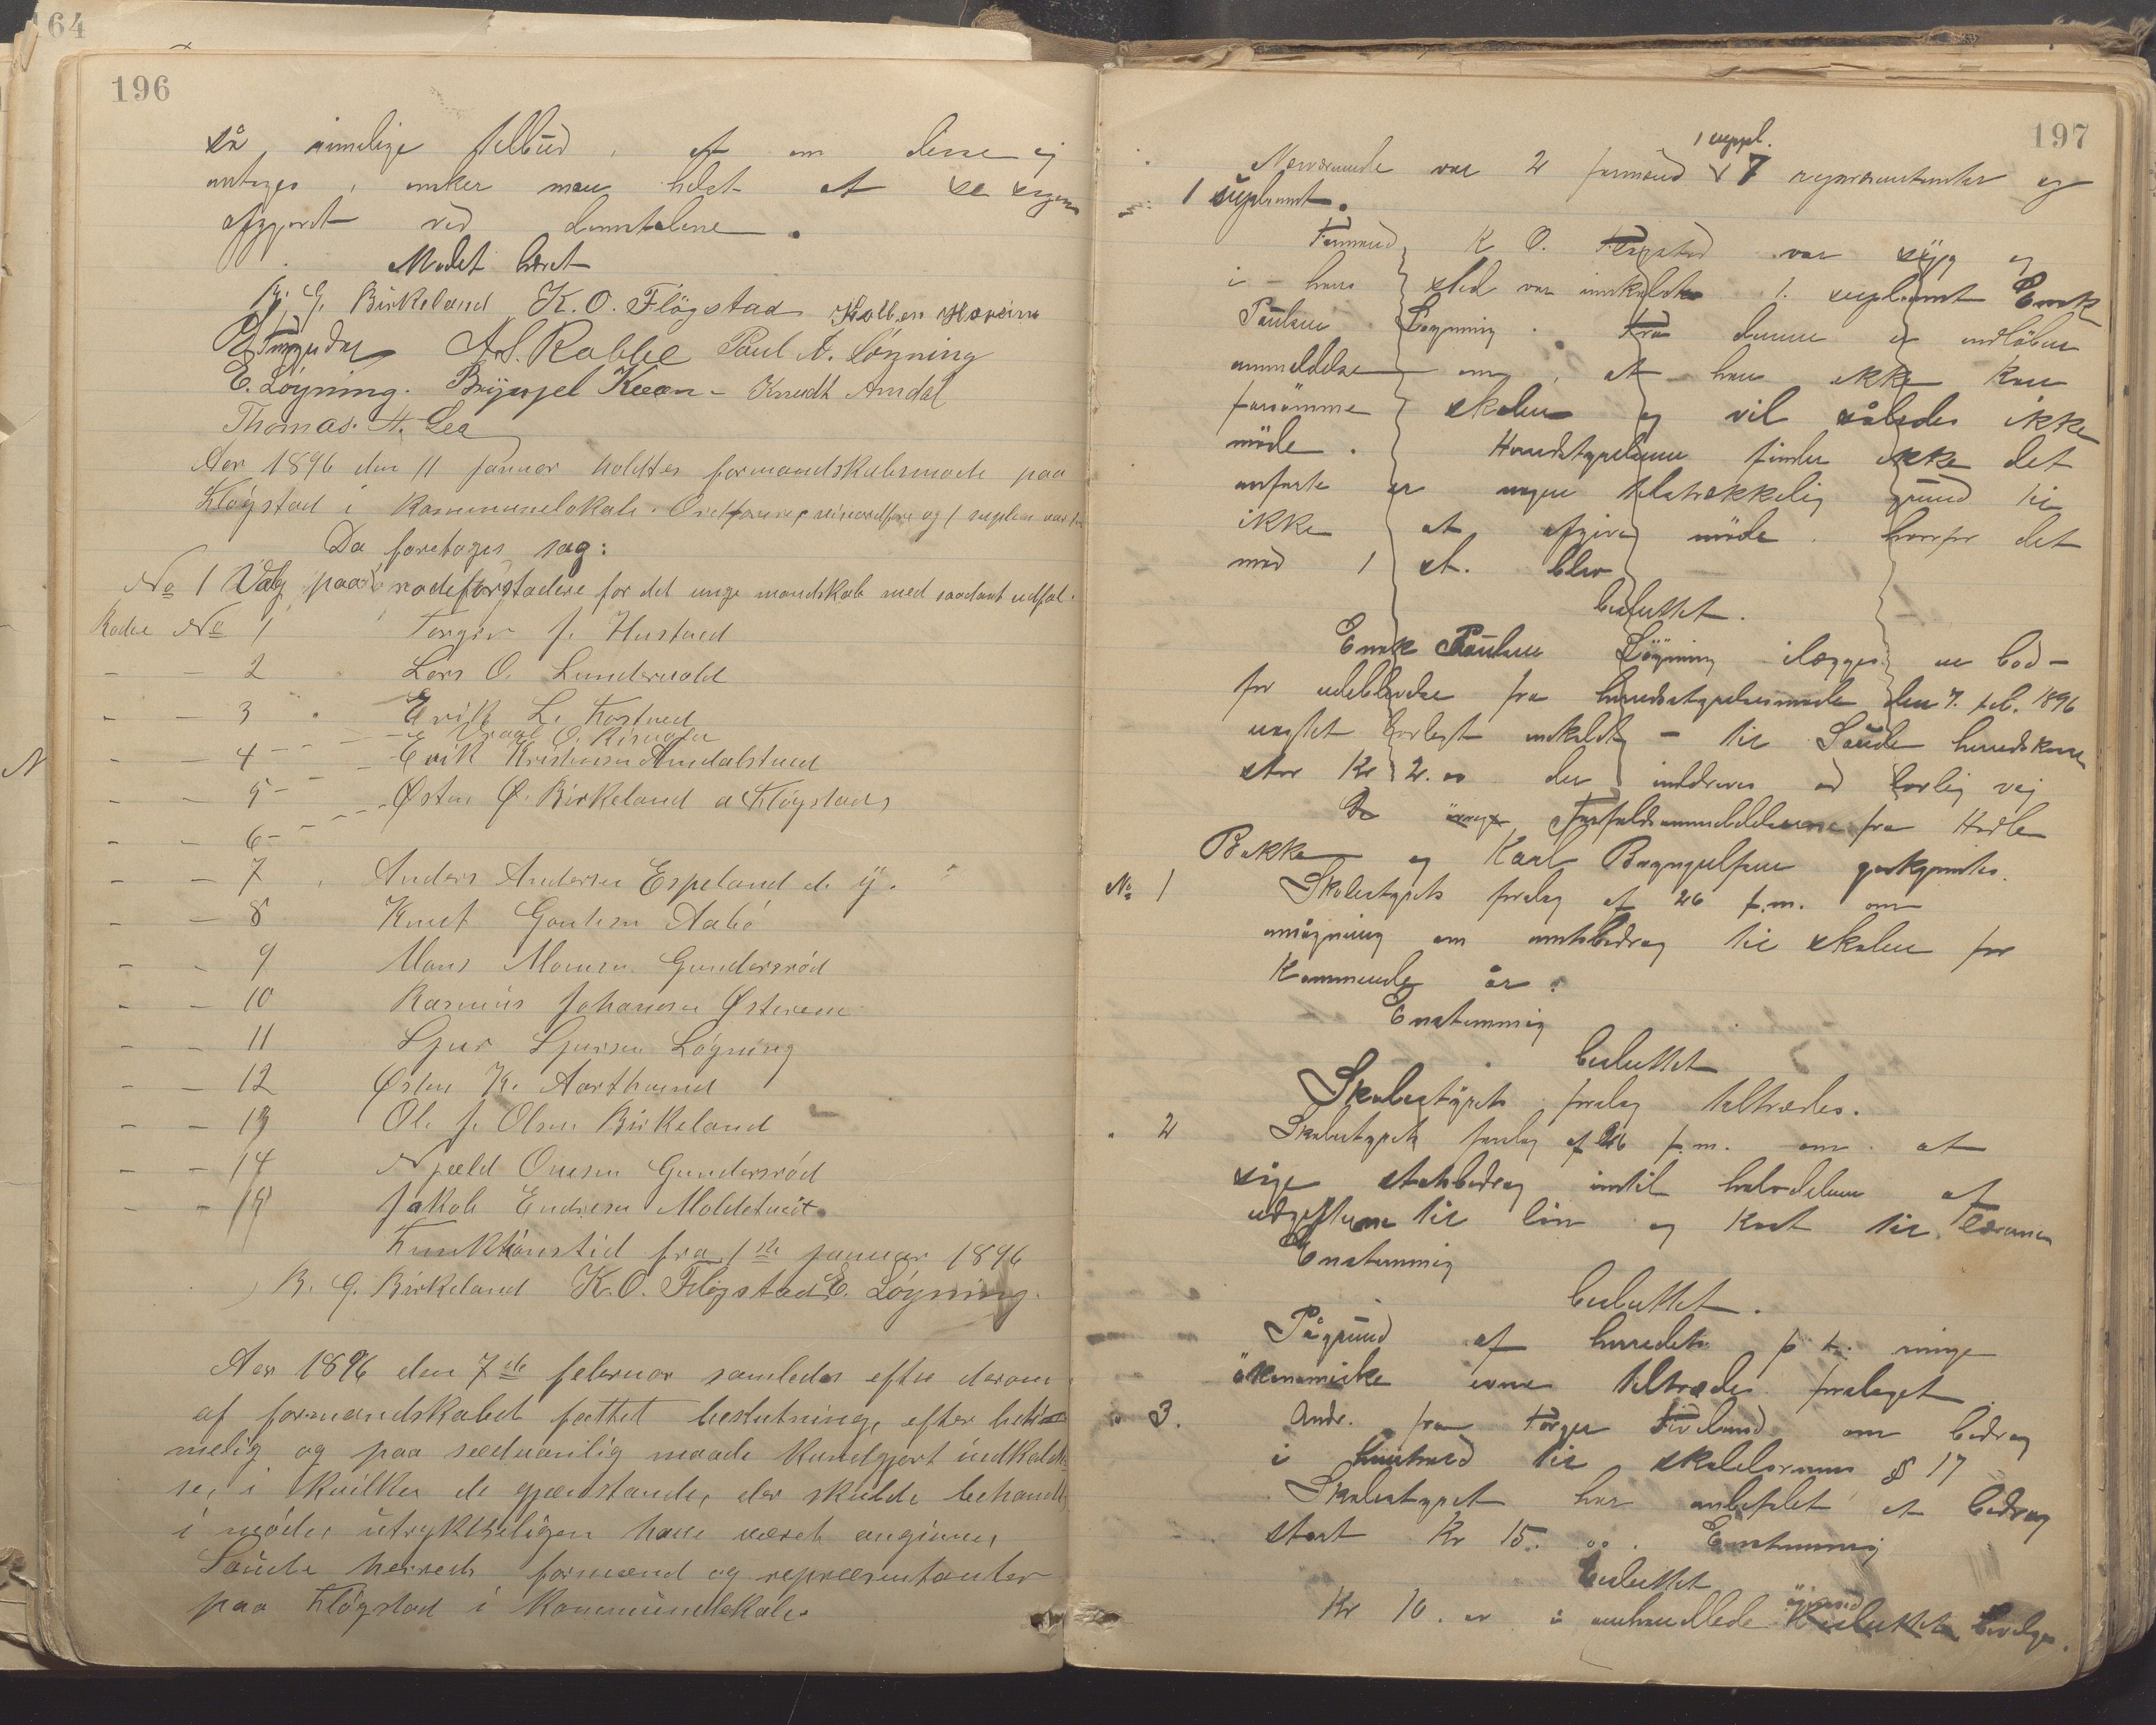 164
196
så rimelige tilbud, at om disse ej
antages, ønker man helst at se sagen
afgjort ved domstolene.
Mødet hævet
B. G. Birkeland K. O. Flögstad
A. S. Rabbe Paul A. Löyning
E. Löyning. Knudt Amdal
Thomas A. Lea
Aar 1896 den 11 januar holdtes formandskabsmøde paa
Flögstad i Kommunelokale. Ordförer, viceordfører og 1 suplea
Da foretoges sag:
No 1 Valg paa rodeforstadere for det unge mandskab med saadant udfal.
Rode No 1 Torger J. Hustved
- - 2 Lars O. Lundevold
- - 3 Erik L.
- - 4 Erik Kristensen Amdalstved
- - 5 Østen Ø. Birkeland a Flögstad
- - 6
- - 7 Anders Andersen Espeland d. y.
- - 8 Knut Gautesen Aabö
- - 9 Mons Monsen Gundersröd
- - 10 Rasmus Johannsen Østerem
- - 11 Sjur Sjursen Löyning
- - 12 Østen K. Aarthund
- - 13 Ole J. Olsen Birkeland
- - 14 Njæld Onesen Gundersröd
- - 15 Jakob Endresen Moldetveit.
Funktionstid fra 1ste januar 1896
B. G. Birkeland K. O. Flögstad E. Löyning.
Aar 1896 den 7de februar samledes efter derom
af formandskabet fattet beslutning, efter betim
melig og paa sædvanlig maade kundgjort indkaldel
se, i hvilken de gjenstande, der skulde behandl
i mödet utrykkeligen have været angivne,
Saude herreds formænd og repræsentanter
paa Flögstad i Kommunelokale.
197
1 suppl.
Nærværende var 2 formænd 7 repræsentanter og
1 supleant.
Formand K O. Flögstad var syg og
i hans sted var innkaldt 1. supleant Enok
Paulsen Løyning. Fra denne er indløben
anmeldelse om, at han ikke kan
forsömme skolen og vil således ikke
möde. Herredstyrelsen finder ikke det
anførte er nogen tilstrækkelig grund til
ikke at afgive möde. hvorfor det
med 1 st. blev
besluttet.
Enok Paulsen Löyning ilægges en bod -
for udeblivelse fra herredsstyrelsesmøde den 7. feb. 1896
uagtet lovligt indkaldt - til Saude herredskasse
stor Kr 2.00 der inddrives ad lovlig vej
De Forfaldsanmeldelserne fra
Bakka og Karl Brynjulfsen godkjendtes.
No 1 Skolestyrets forslag af 26 f.m. om
ansøgning om amtsbidrag til skolen for
Kommende år.
Enstemmig
besluttet
Skolestyrets forslag tiltrædes.
" 2 Skolestyrets forslag af 26 f.m. om at
söge statsbidrag indtil halvdelen af
udgifterne til lön og kost til læreren
Enstemmig
besluttet.
Pågrund af herredets p. t. ringe
økonomiske evne tiltrædes forslaget.
" 3. Andr. fra Torger om bidrag
i henhold til skoleloven § 17
Skolestyret har anbefalet et bidrag
stort Kr 15. 00. Enstemmig
besluttet
Kr 10. 00 i omhandlede øiemed bevilges.